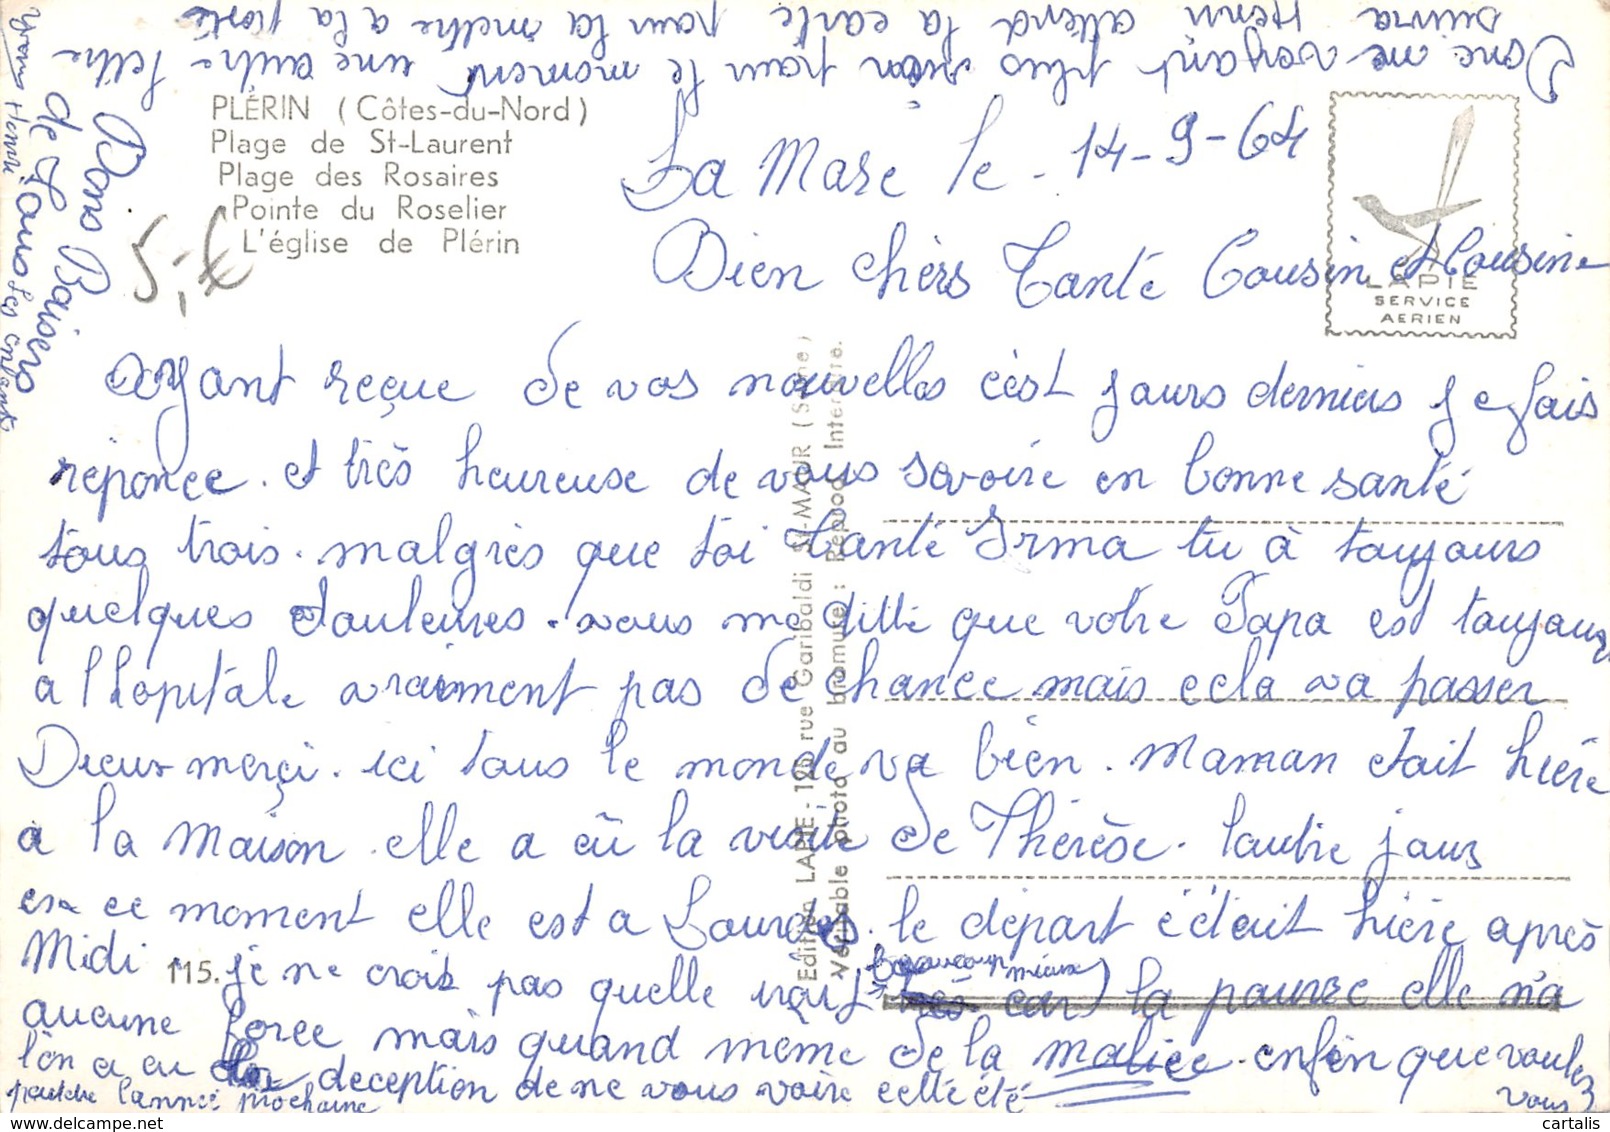 PLÉRIN (Côtes-du-Nord)
Plage de St-Laurent
Plage des Rosaires
Pointe du Roselier
L'église de Plérin
5,-€
LAPIE
SERVICE
AERIEN
La Mare le - 14-9-64
Bien chèrs Tante Cousin et Cousine
ayant reçue de vos nouvelles cést jours derniers je fais
réponce. et très heureuse de vous savoire en bonne santé
tous trois. malgrès que toi tante Irma tu à toujours
quelques douleures. vous me ditte que votre Papa est toujours
a l'hopitale vraiment pas de chance mais cela va passer
Dieux merçi. ici tous le monde va bien. Maman etait hière
a la maison elle a eû la visite de Thérèse. lautre jour
en ce moment elle est a Lourdes. le départ é'était hière après
Midi. je ne crois pas quelle irait beaucoup mieux car la pauvre elle n'a
aucune force mais quand même de la malice. enfin que voulez
vous?
l'on a eu deception de ne vous voire cette été
peutetre l'année prochaine
Donc ne voyant plus rien pour le moment une autre lettre
suivra Henri attend la carte pour la mettre a la poste
Bons Baisers
de Tous les enfants
Yvonne Henri
115.
Edition LAPIE - 120 rue Garibaldi St-MAUR (Seine)
Véritable photo au bromure : Reprod. Interdite.
© cartalis
www.delcampe.net